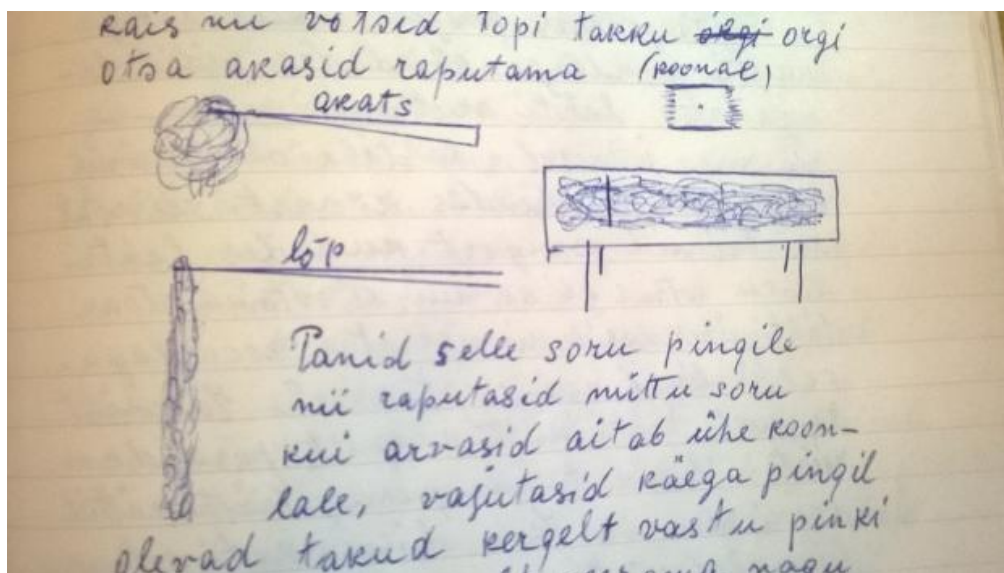 käis nii võtsid topi takku orgi orgi
otsa akasid raputama (koonal)
akats
lõp
Panid selle soru pingile
nii raputasid mittu soru
kui arvasid aitab ühe koon-
lale, vajutasid käega pingil
olevad takud kergelt vastu pinki
nagu